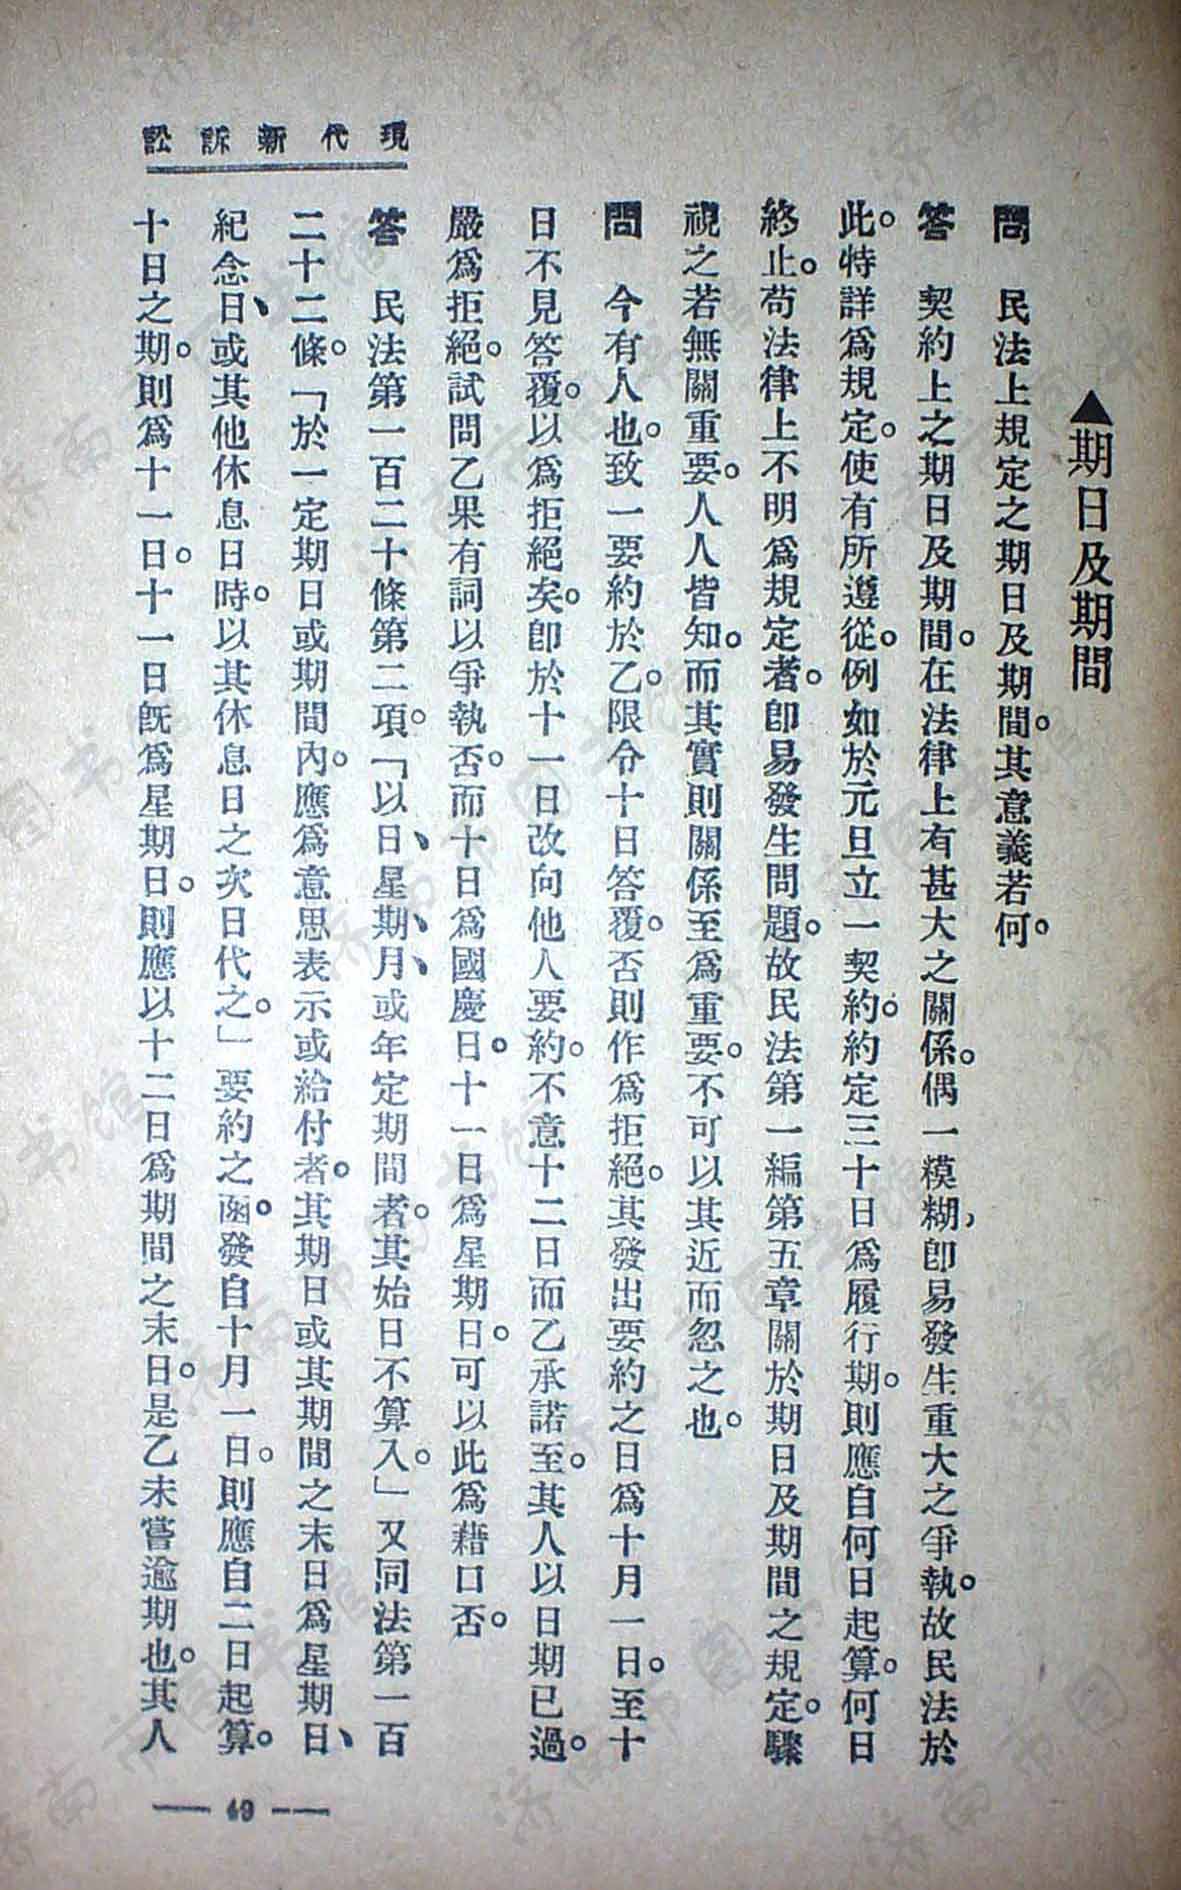 現代新訴訟
▲期日及期間
問　民法上規定之期日及期間。其意義若何。
答　契約上之期日及期間。在法律上有甚大之關係。偶一糢糊,即易發生重大之爭執。故民法於
此。特詳爲規定。使有所遵從。例如於元旦立一契約。約定三十日爲履行期。則應自何日起算。何日
終止。苟法律上不明爲規定者。即易發生問題。故民法第一編第五章關於期日及期間之規定。驟
視之若無關重要。人人皆知。而其實則關係至爲重要。不可以其近而忽之也。
問　今有人也。致一要約於乙。限令十日答覆。否則作爲拒絕。其發出要約之日爲十月一日。至十
日不見答覆。以爲拒絕矣。即於十一日改向他人要約。不意十二日而乙承諾至。其人以日期已過。
嚴爲拒絕。試問乙果有詞以爭執否。而十日爲國慶日。十一日爲星期日。可以此爲藉口否。
答　民法第一百二十條第二項。「以日、星期、月、或年定期間者。其始日不算入。」又同法第一百
二十二條。「於一定期日或期間內。應爲意思表示或給付者。其期日或其期間之末日爲星期日、
紀念日、或其他休息日時。以其休息日之次日代之。」要約之函。發自十月一日。則應自二日起算。
十日之期。則爲十一日。十一日既爲星期日。則應以十二日爲期間之末日。是乙未嘗逾期也。其人
— 49 —
济南市图书馆